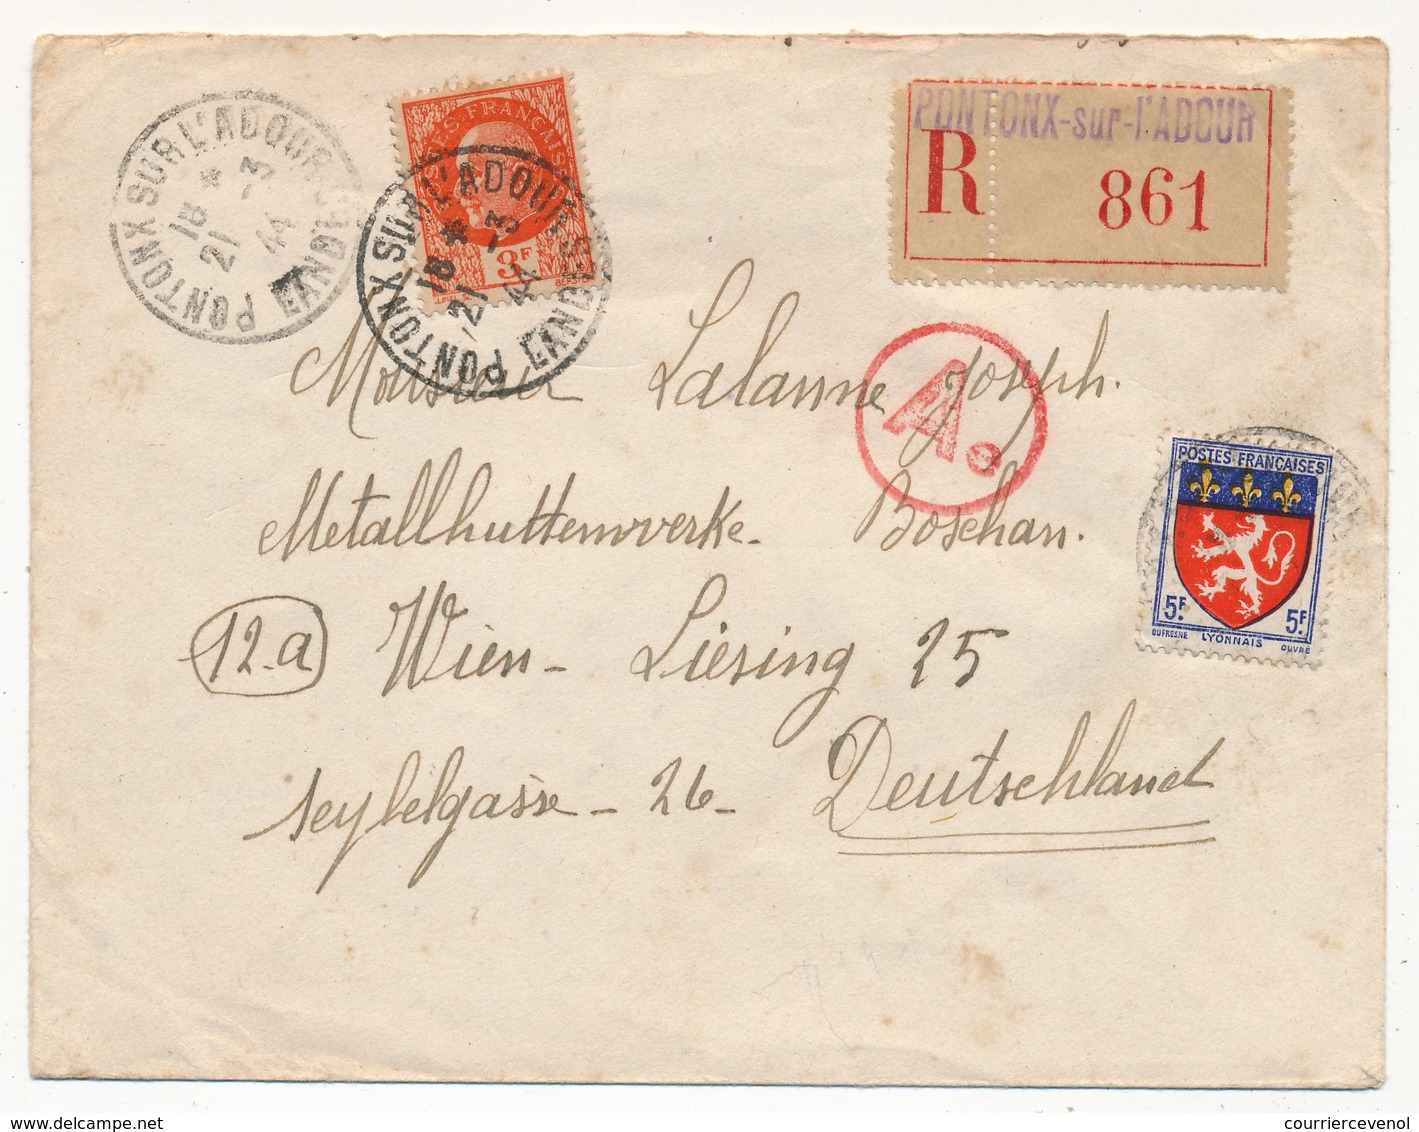 PONTONX SUR L'ADOUR
18 *
21 -3
44
LANDES
POSTES FRANÇAISES
3F
PONTONX SUR L'ADOUR
18 *
21 -3
44
LANDES
PONTONX-sur-l'ADOUR
R 861
A.
Monsieur Lalanne Joseph.
Metallhuttenwerke- Boschan.
12-a Wien- Liesing 25
seybelgasse - 26- Deutschland
POSTES FRANÇAISES
5F. 5F.
DUFRESNE LYONNAIS OUVRÉ
www.delcampe.net
courriercevenol